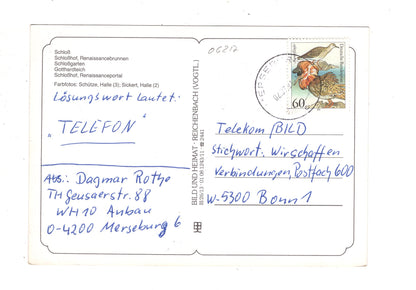 06217
Schloß
Schloßhof, Renaissancebrunnen
Schloßgarten
Gotthardteich
Schloßhof, Renaissanceportal
Farbfotos: Schütze, Halle (3); Sickert, Halle (2)
Lösungswort lautet:
"TELEFON"
Aus: Dagmar Rothe
TH Geusaerstr. 88
WH 10 Anbau
O-4200 Merseburg 6
BILD UND HEIMAT · REICHENBACH (VOGTL.)
60
Telekom/BILD
Stichwort: Wir schaffen
Verbindungen, Postfach 600
W-5300 Bonn 1